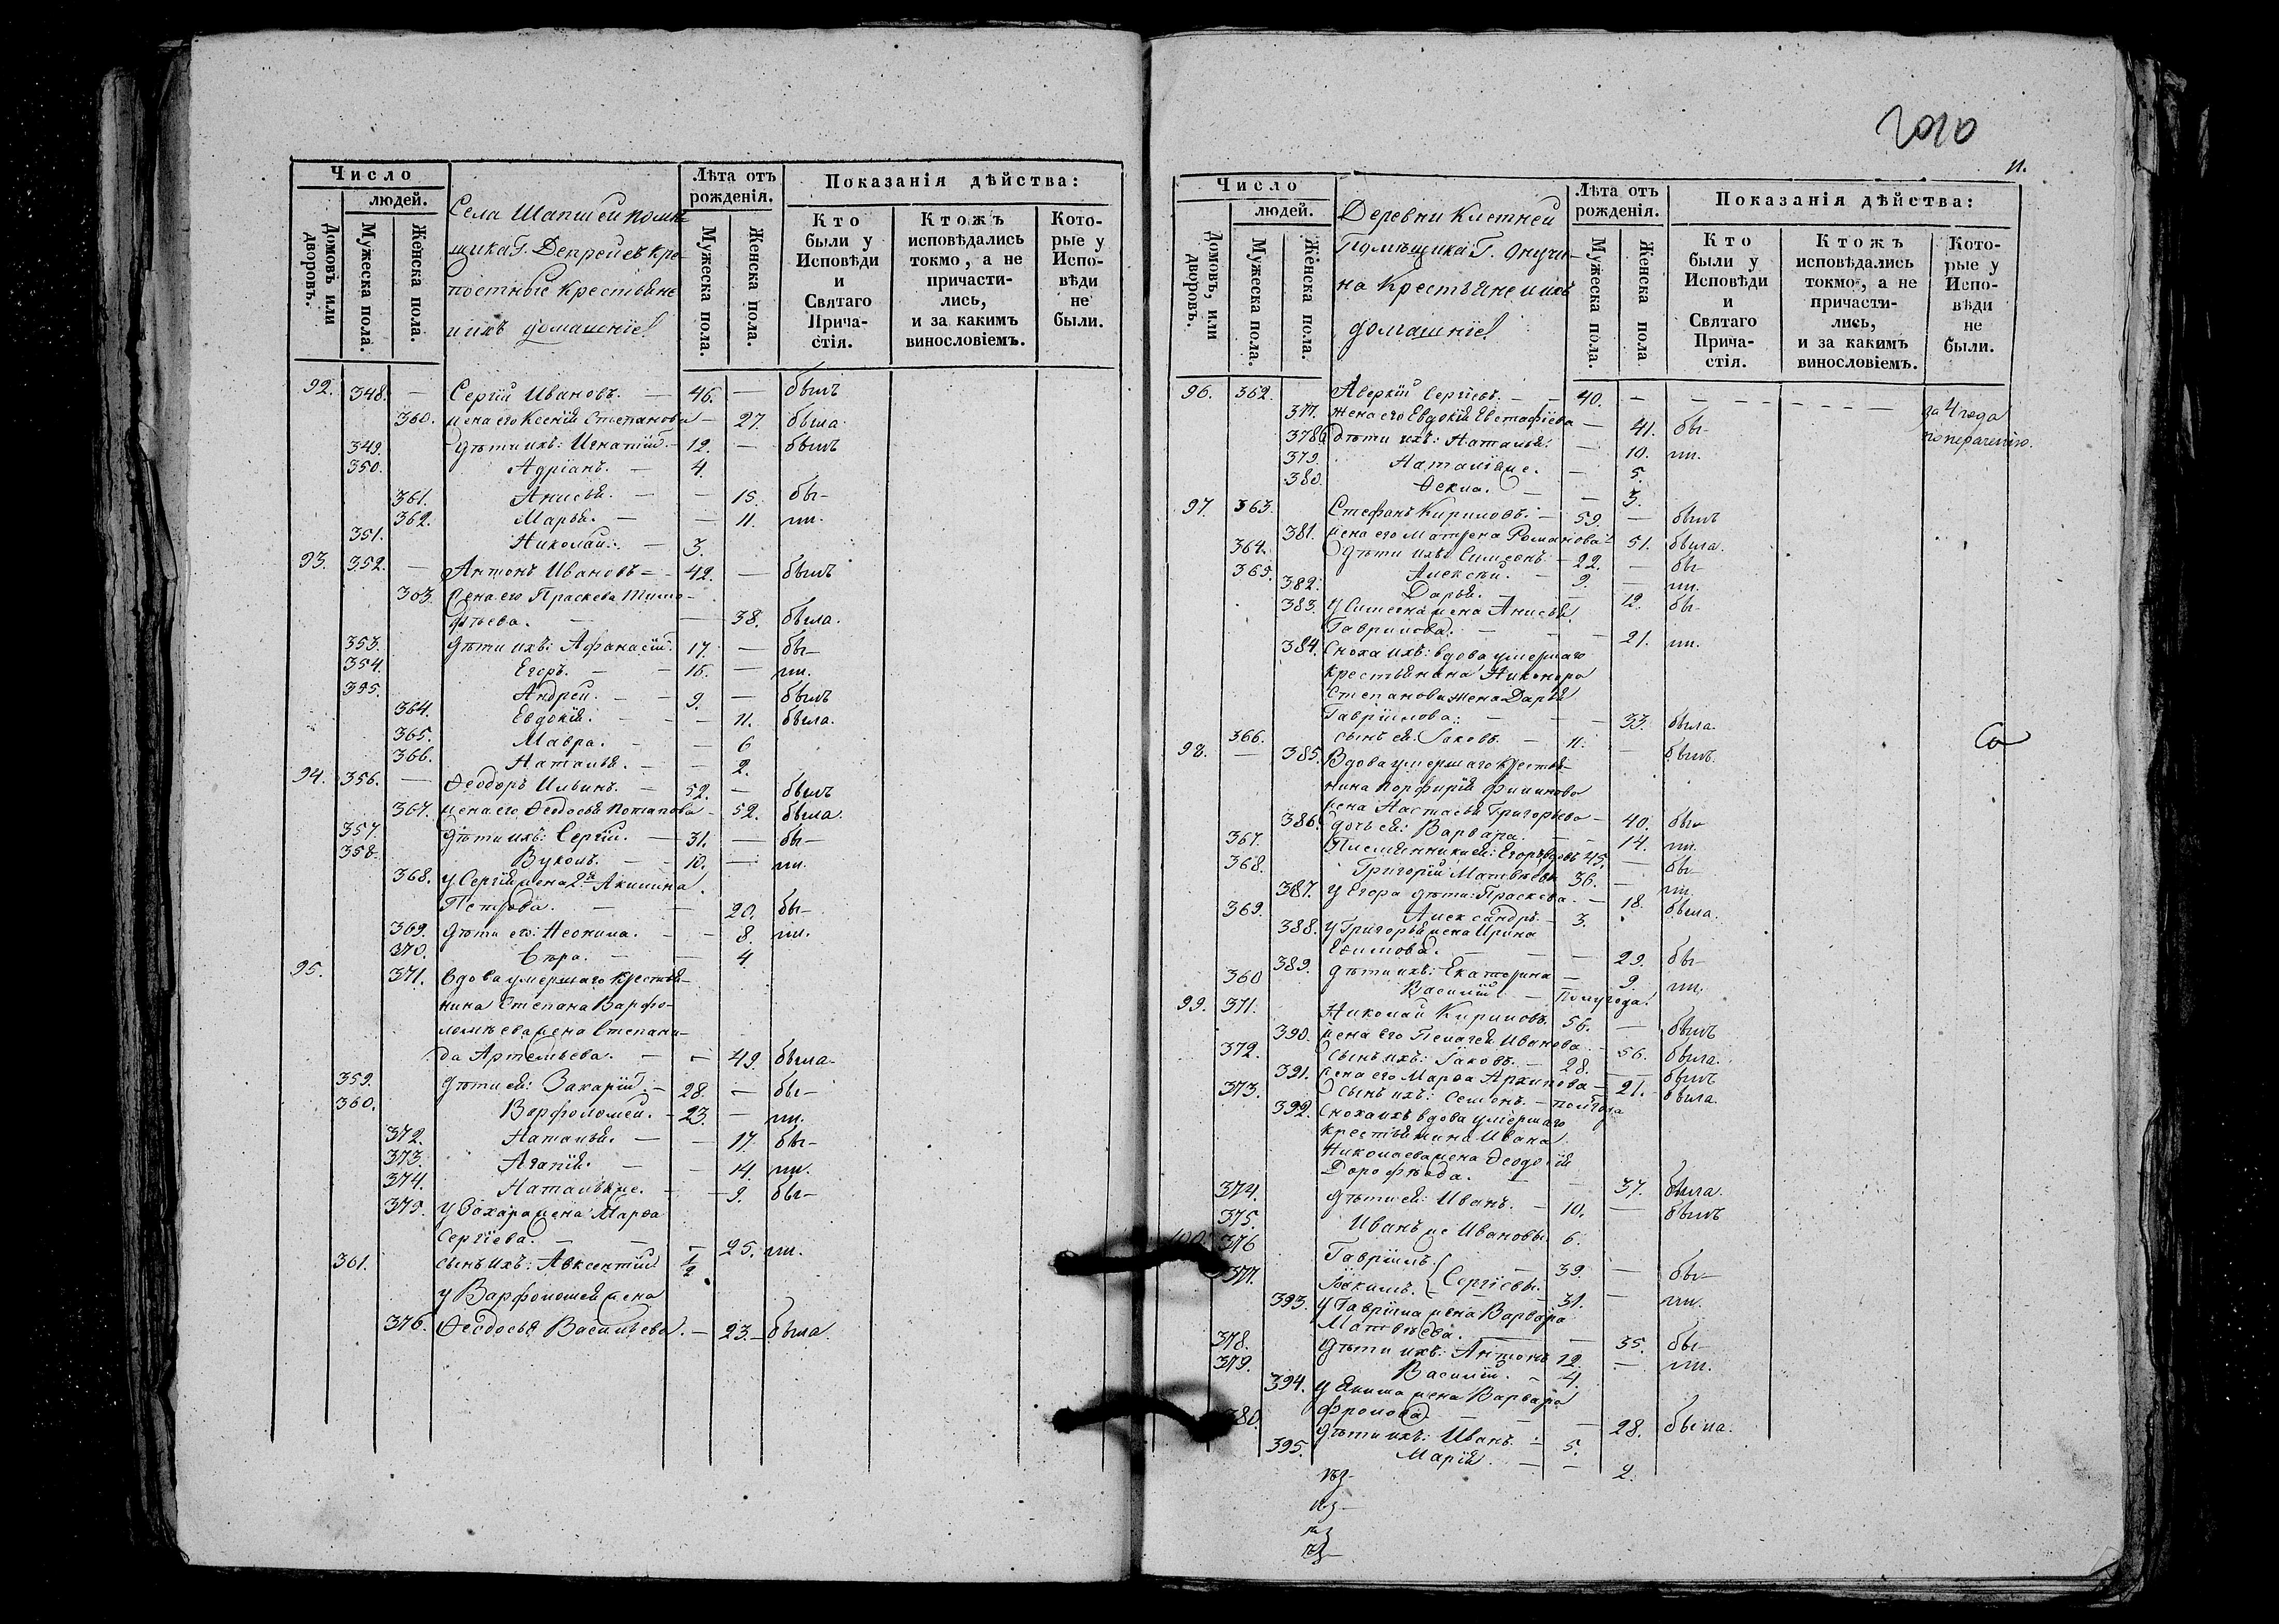 Число
людей.
Домовъ или дворовъ.
Мужеска пола.
Женска пола.
Села Шапшей помѣ-
щика Г. Депрейсъ кре-
постные крестьяне
и ихъ домашніе
Лѣта отъ рожденія.
Мужеска пола.
Женска пола.
Показанія дѣйства:
Кто были у Исповѣди и Святаго Прича-стія.
Ктожъ исповѣдались токмо, а не причасти-лись, и за какимъ винословіемъ.
Кото-рые у Испо-вѣди не были.
92. 348. — Сергій Ивановъ. — 46. — былъ
360. жена его Ксенія Степанова — 27. была
349. дѣти ихъ: Игнатій — 12. — былъ
350. Адріанъ. — 4.
361. Анисья. — — 15. бы-
362. Марья. — — 11. ли.
351. Николай. — 3.
93. 352. — Антонъ Ивановъ — 42. — былъ
303. жена его Праскева Тимо-
фѣева. — — 38. была.
353. дѣти ихъ: Афанасій. 17. — бы-
354. Егоръ. — 15. — ли.
395. Андрей. — 9. — былъ
364. Евдокія. — — 11. была.
365. Мавра. — — 6
366. Наталья. — — 2.
94. 356. — Ѳеодоръ Ильинъ. — 52. — былъ
367. жена его Ѳеодосья Потапова — 52. была.
357. дѣти ихъ: Сергій. — 31. — бы-
358. Вуколъ. — 10. — ли.
368. у Сергія жена 2я Акилина
Петрова. — — 20. бы-
369. дѣти его: Неонила. — — 8. ли.
370. Вѣра. — — 4
95. 371. вдова умершаго крестья-
нина Степана Варфо-
ломѣева жена Степани-
да Артемьева. — — 49. была
359. дѣти ея: Захарій. — 28. — бы-
360. Варфоломей. — 23. — ли.
372. Наталья. — — 17. бы-
373. Агапія. — — 14. ли.
374. Наталья же. — — 9. бы-
375. у Захара жена Марѳа
Сергіева. — — 25. ли.
361. сынъ ихъ: Авксентій 1/2
у Варфоломея жена
376. Ѳеодосья Васильева. — 23. была.
2010
11.
Число
людей.
Домовъ, или дворовъ.
Мужеска пола.
Женска пола.
Деревни Клетней
Помѣщика Г. Онучи-
на Крестьяне и ихъ
домашніе
Лѣта отъ рожденія.
Мужеска пола.
Женска пола
Показанія дѣйства:
Кто были у Исповѣди и Святаго Прича-стія.
Ктожъ исповѣдались токмо, а не причасти-лись, и за какимъ винословіемъ.
Кото-рые у Испо-вѣди не были.
96. 362. Аверкій Сергіевъ. — 40. — — за 4 года
377. жена его Евдокія Евстафіева — 41. бы-
по нераченію.
378. дѣти ихъ: Наталья. 10. ли.
379. Наталія же. — 5.
380. Ѳекла. — — 3.
97. 363. Стефанъ Кириловъ. — 59. — былъ
381. жена его Матрена Романова 51. была.
364. дѣти ихъ: Симеонъ — 22. — бы-
365. Алексѣй. — 9. — ли.
382. Дарья. — 12. бы-
383. у Симеона жена Анисья
Гаврилова. — — 21. ли.
384. Сноха ихъ: вдова умершаго
крестьянина Никанора
Степанова жена Дарья
Гавріилова. — — 33. была.
366. сынъ ея: Іаковъ — 11. — былъ.
98. — 385. Вдова умершаго крестья-
нина Порфирія Филипова
жена Настасья Григорьева — 40. бы-
386. дочь ея: Варвара. — 14. ли.
367. Племянники ея: Егоръ вдовъ 45. — бы-
368. Григорій Матвѣевы 36. — ли.
387. у Егора дѣти: Праскева. — 18. была.
369. Александръ — 3.
388. у Григорья жена Ирина
Ефимова. — — 29. бы-
389. дѣти ихъ: Екатерина — 9. ли.
360 Василій — полугода.
99. 371. Николай Кириловъ 56. — былъ
390. жена его Пелагея Иванова — 56. была.
372. Сынъ ихъ: Іаковъ. — 28. — былъ
391. жена его Марѳа Архипова — 21. была.
373. сынъ ихъ: Семенъ. — полгода
392. Сноха ихъ вдова умершаго
крестьянина Ивана
Николаева жена Ѳеодосія
Дорофѣева. — — 37. была.
374. дѣти ея: Иванъ. — 10. — былъ
375. Иванъ же Ивановы. 6.
100. 376 Гавріилъ — 39. — бы-
377. Іоакимъ. Сергіевы. — 31. — ли.
393. у Гавріила жена Варвара
Матвѣева. — — 35. бы-
378. дѣти ихъ: Антонъ 12. — ли.
379. Василій. — 4.
394. у Якима жена Варвара
Фролова. — — 28. была.
380. дѣти ихъ: Иванъ. — 5.
395. Марія. — — 2.